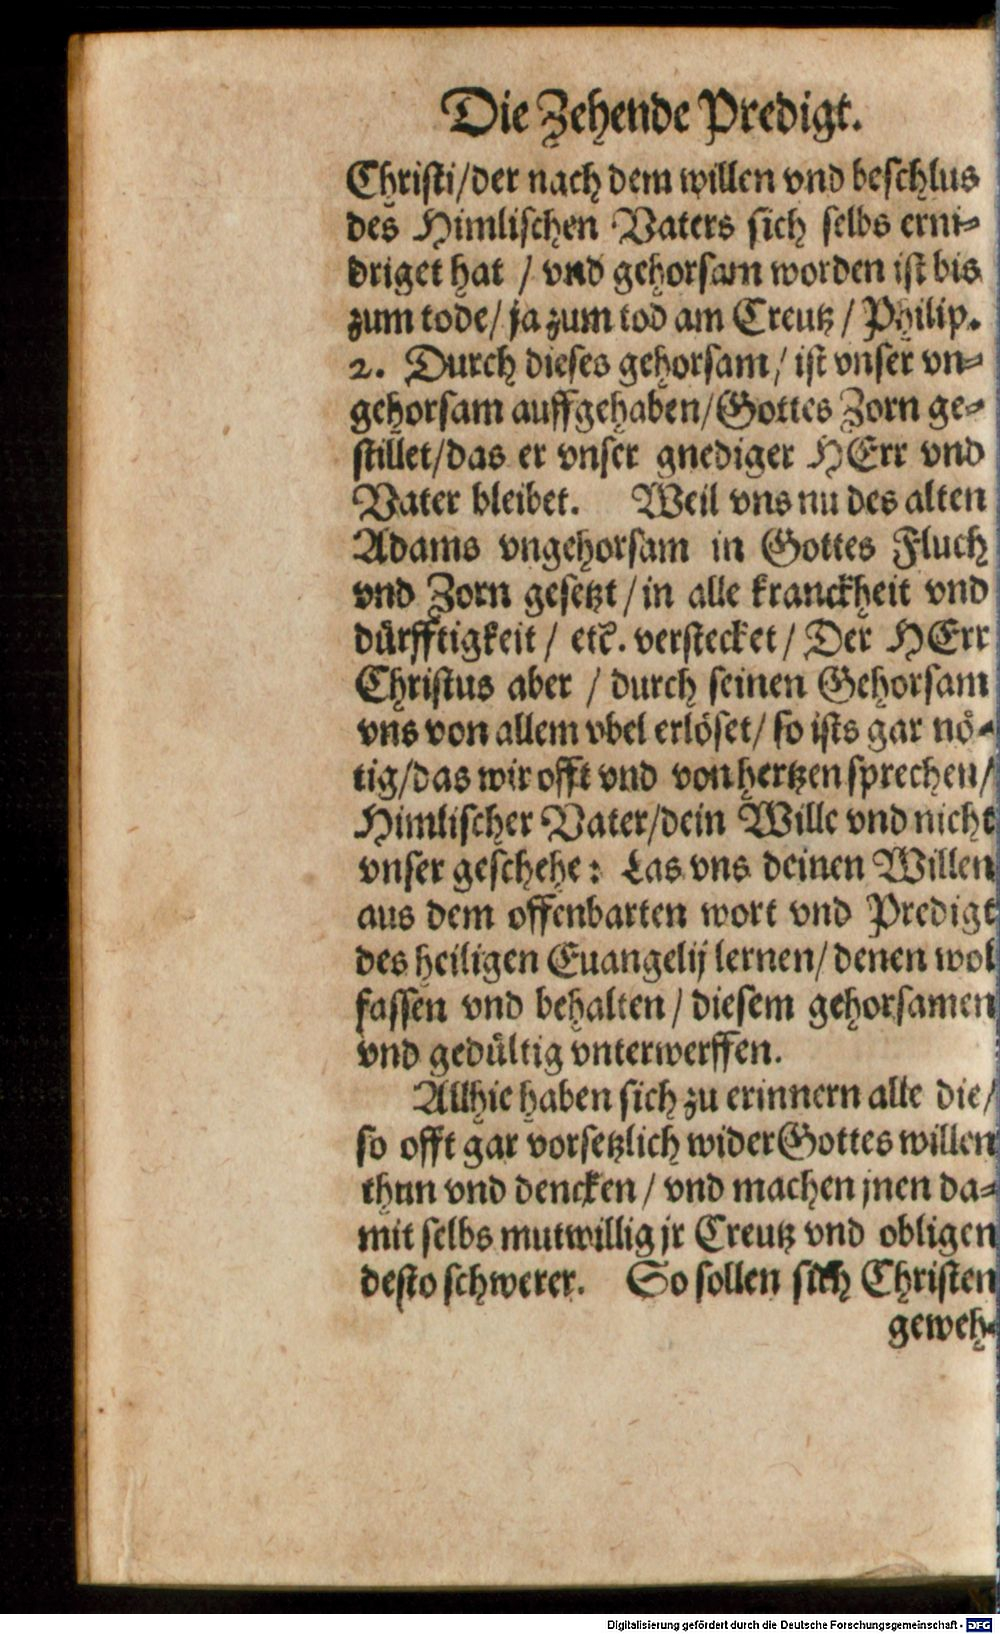 Die Zehende Predigt.
Christi/der nach dem willen vnd beschlus
des Himlischen Vaters sich selbs erni-
driget hat / vnd gehorsam worden ist bis
zum tode/ ja zum tod am Creutz / Philip.
2. Durch dieses gehorsam/ ist vnser vn-
gehorsam auffgehaben/Gottes Zorn ge-
stillet/das er vnser gnediger HErr vnd
Vater bleibet. Weil vns nu des alten
Adams vngehorsam in Gottes Fluch
vnd Zorn gesetzt / in alle kranckheit vnd
dürfftigkeit / etc. verstecket / Der HErr
Christus aber / durch seinen Gehorsam
vns von allem vbel erlöset/ so ists gar nö-
tig/das wir offt vnd von hertzen sprechen/
Himlischer Vater/dein Wille vnd nicht
vnser geschehe: Las vns deinen Willen
aus dem offenbarten wort vnd Predigt
des heiligen Euangelij lernen/ denen wol
fassen vnd behalten / diesem gehorsamen
vnd gedültig vnterwerffen.
Allhie haben sich zu erinnern alle die/
so offt gar vorsetzlich wider Gottes willen
thun vnd dencken / vnd machen jnen da-
mit selbs mutwillig jr Creutz vnd obligen
desto schwerer. So sollen sich Christen
geweh-
Digitalisierung gefördert durch die Deutsche Forschungsgemeinschaft - DFG